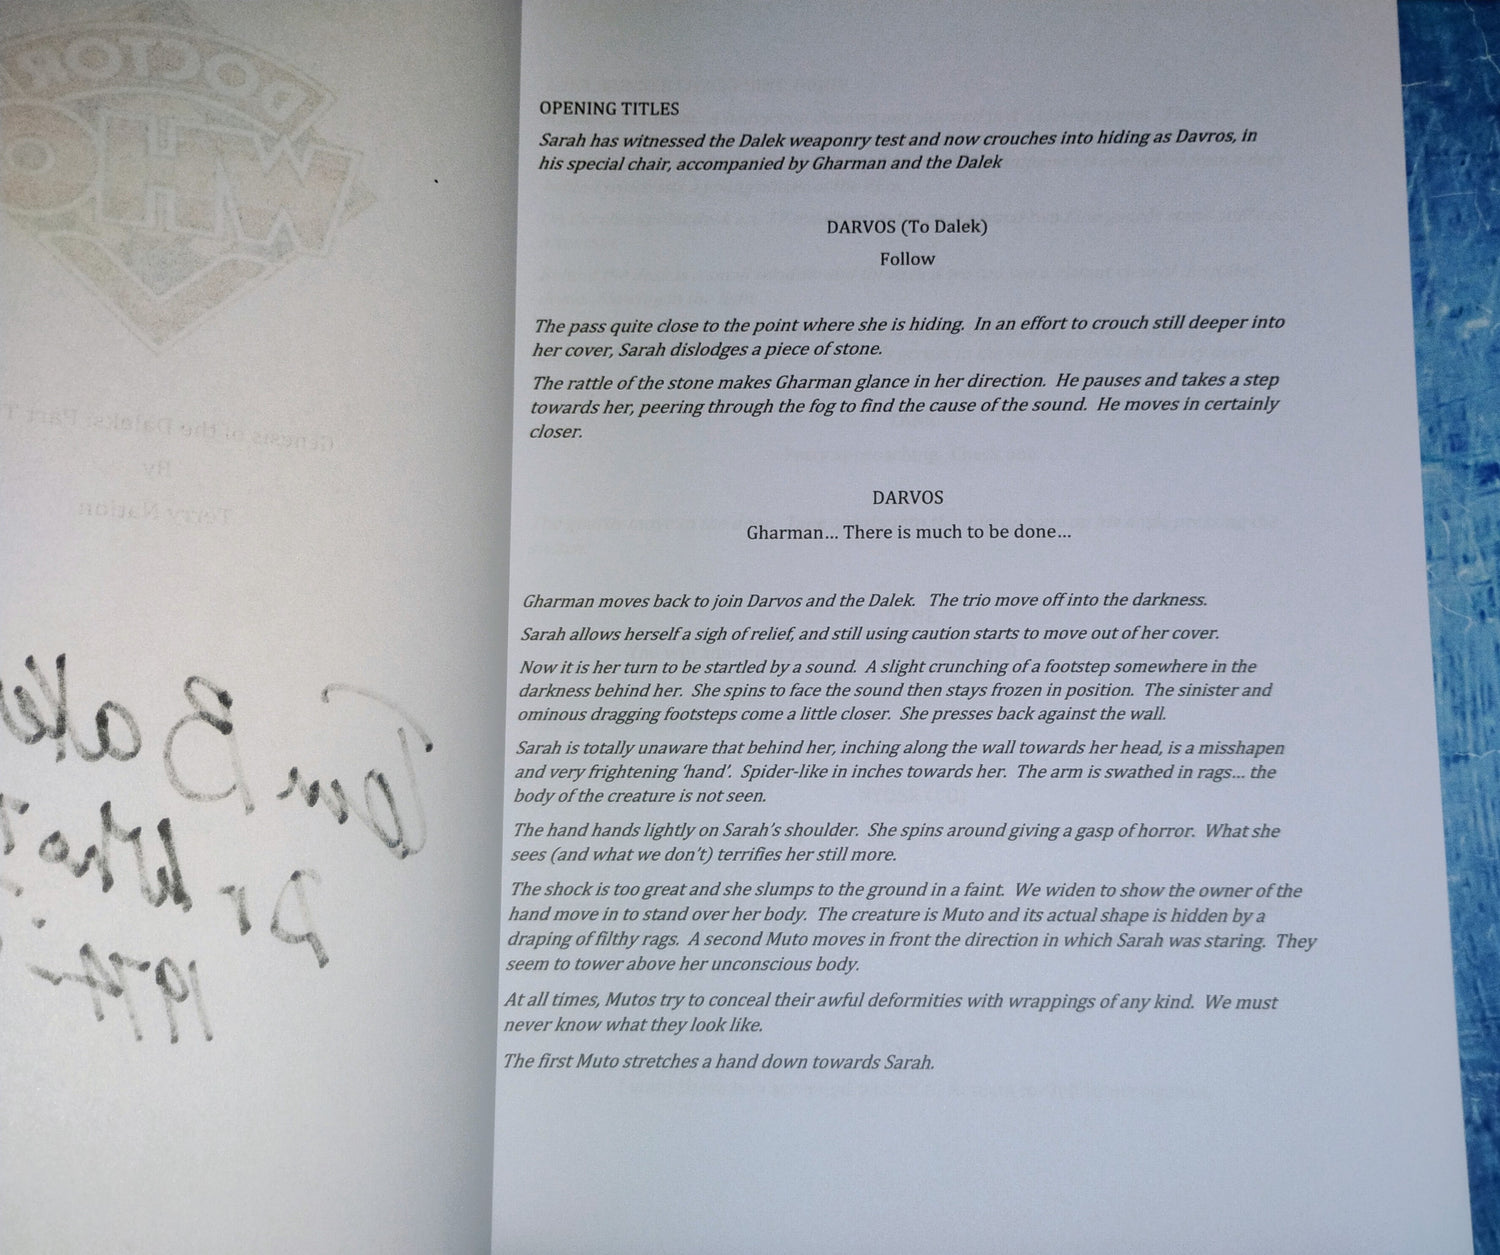 DOCTOR
WHO
Genesis of the Daleks: Part
By
Terry Nation
Tom Baker
Dr Who
OPENING TITLES
Sarah has witnessed the Dalek weaponry test and now crouches into hiding as Davros, in
his special chair, accompanied by Gharman and the Dalek
DARVOS (To Dalek)
Follow
The pass quite close to the point where she is hiding. In an effort to crouch still deeper into
her cover, Sarah dislodges a piece of stone.
The rattle of the stone makes Gharman glance in her direction. He pauses and takes a step
towards her, peering through the fog to find the cause of the sound. He moves in certainly
closer.
DARVOS
Gharman... There is much to be done...
Gharman moves back to join Darvos and the Dalek. The trio move off into the darkness.
Sarah allows herself a sigh of relief, and still using caution starts to move out of her cover.
Now it is her turn to be startled by a sound. A slight crunching of a footstep somewhere in the
darkness behind her. She spins to face the sound then stays frozen in position. The sinister and
ominous dragging footsteps come a little closer. She presses back against the wall.
Sarah is totally unaware that behind her, inching along the wall towards her head, is a misshapen
and very frightening 'hand'. Spider-like in inches towards her. The arm is swathed in rags... the
body of the creature is not seen.
The hand hands lightly on Sarah's shoulder. She spins around giving a gasp of horror. What she
sees (and what we don't) terrifies her still more.
The shock is too great and she slumps to the ground in a faint. We widen to show the owner of the
hand move in to stand over her body. The creature is Muto and its actual shape is hidden by a
draping of filthy rags. A second Muto moves in front the direction in which Sarah was staring. They
seem to tower above her unconscious body.
At all times, Mutos try to conceal their awful deformities with wrappings of any kind. We must
never know what they look like.
The first Muto stretches a hand down towards Sarah.